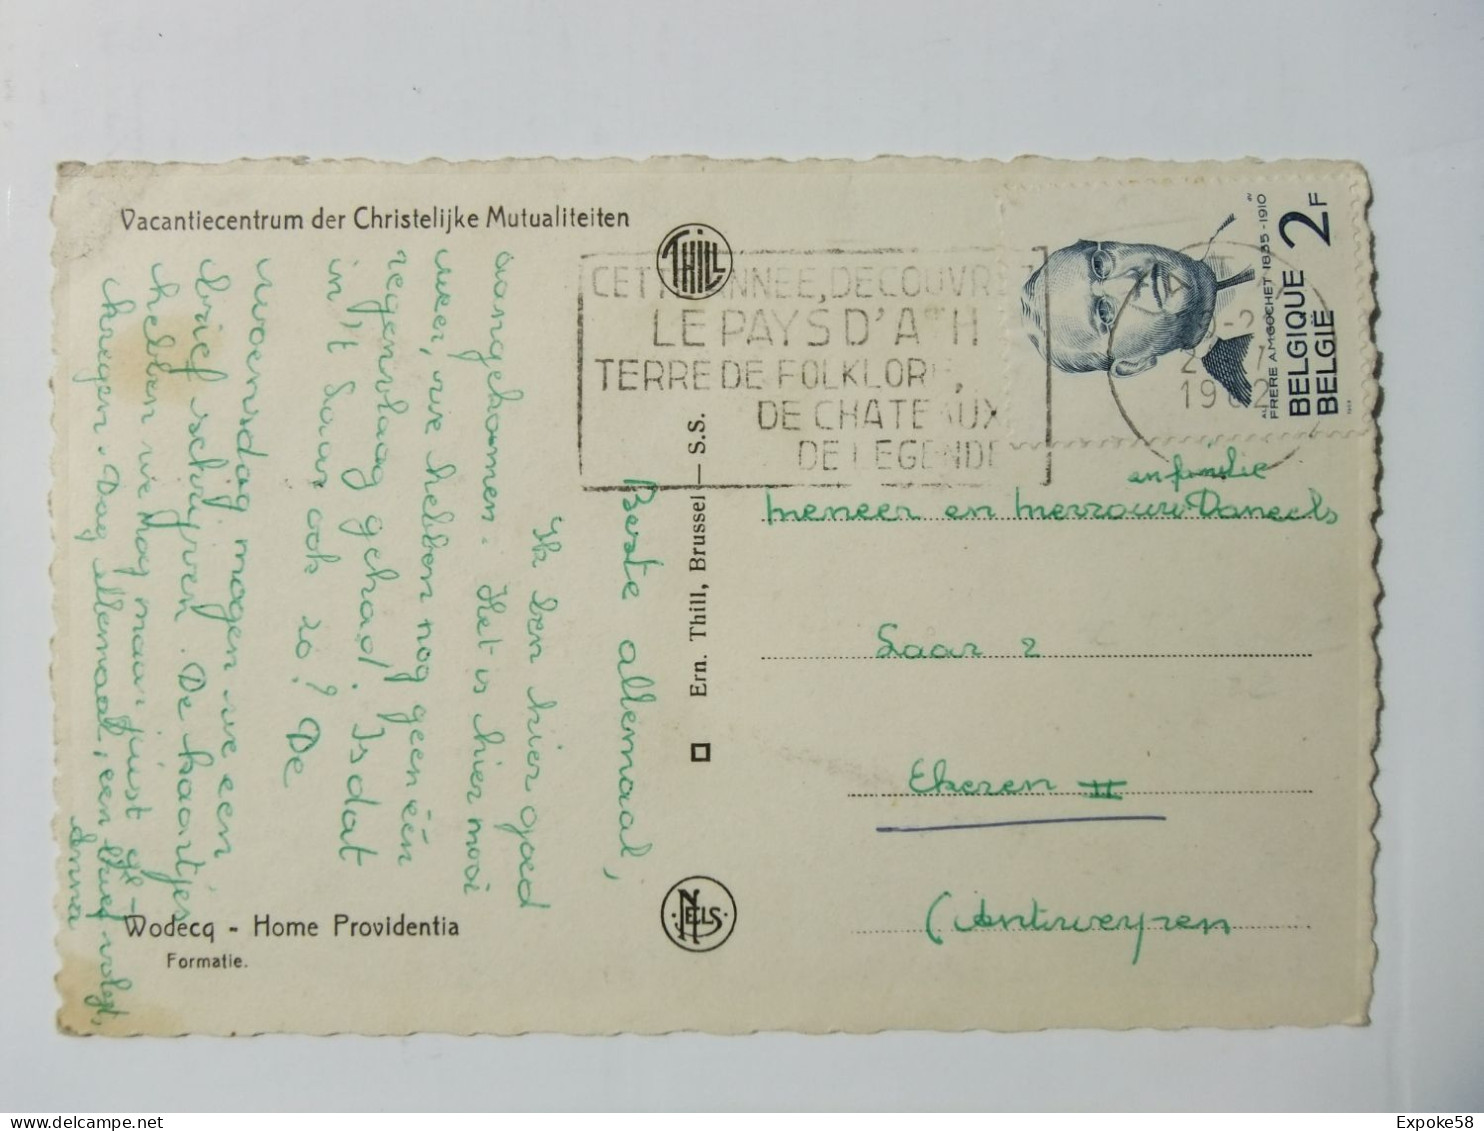 Vacantiecentrum der Christelijke Mutualiteiten
Beste allemaal,
Ik ben hier goed
aangekomen. Het is hier mooi
weer, we hebben nog geen één
regenvlaag gehad. Is dat
in 't Laar ook zo? De
woensdag mogen we een
brief schrijven. De kaartjes
hebben we Mag maar juist ge-
kregen. Dag allemaal, een brief volgt,
Anna
Wodecq - Home Providentia
Formatie.
THILL
Ern. Thill, Brussel — S.S.
NELS
CETTE ANNEE, DECOUVREZ
LE PAYS D'ATH
TERRE DE FOLKLORE,
DE CHATEAUX
DE LEGENDE
ATH
1962
2F
BELGIQUE
BELGIË
FRERE A.M.GOCHET 1835-1910
en familie
meneer en mevrouw Daneels
Laar 2
Ekeren II
(Antwerpen
Expoke58